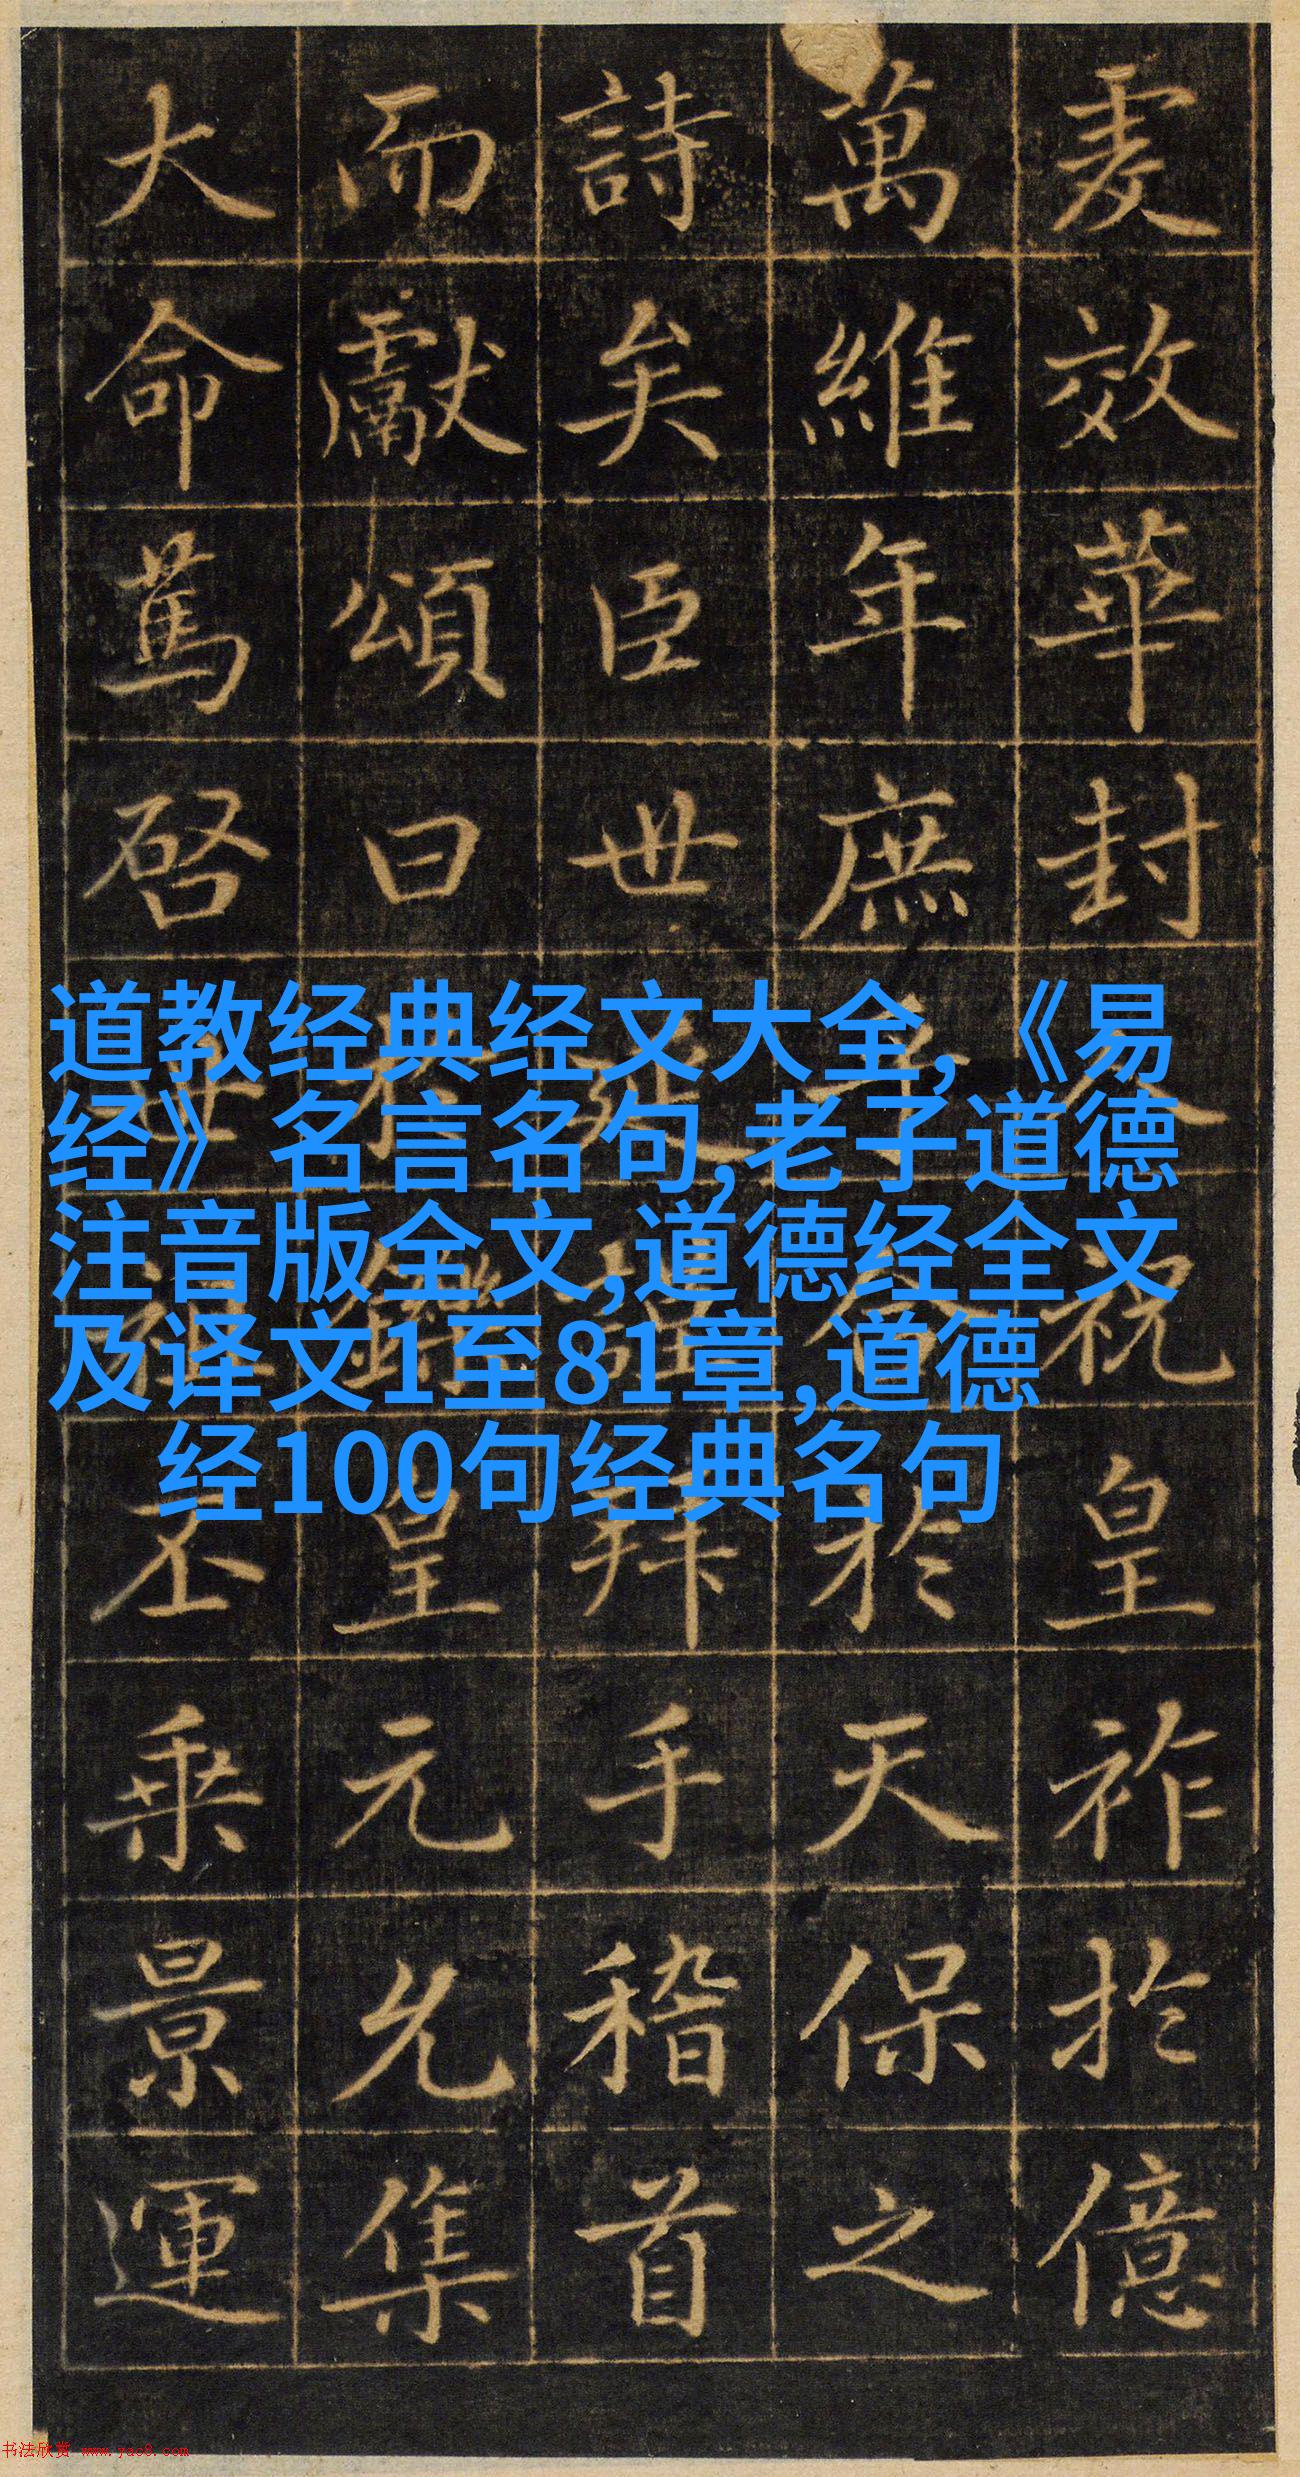 虔效華封祝皇祚於億
萬維年庶合於天保之
詩矣臣世延謹拜手稽首
而獻頌曰於鑠皇元允集
大命篤啓祖丕乘景運
道教经典经文大全,《易
经》名言名句,老子道德
注音版全文,道德经全文
及译文1至81章,道德
经100句经典名句
书法欣赏 www.yac8.com